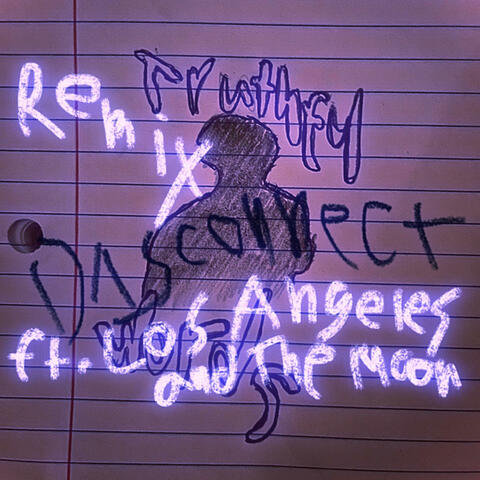 Remix
Disconnect
ft. Los Angeles
and The Moon